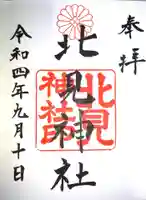 奉拝
北見神社
北見神社印
令和四年九月十日